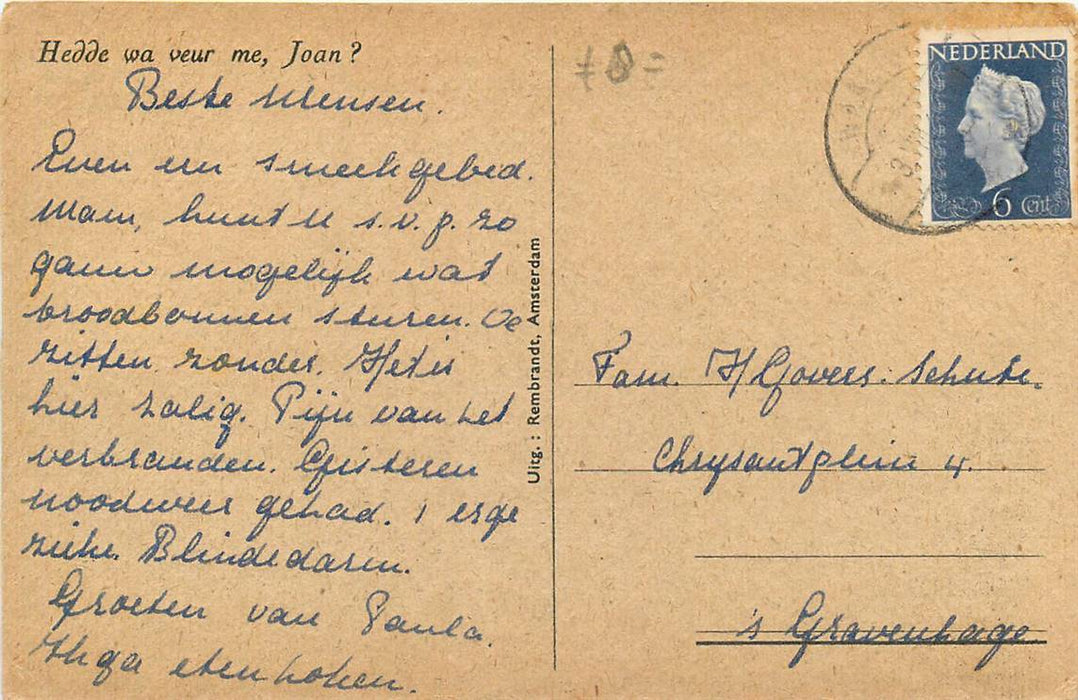 Hedde wa veur me, Joan?
Beste Mensen.
Even een smeekgebed.
Mam, kunt U s.v.p. zo
gauw mogelijk wat
broodbonnen sturen. We
zitten zonder. Het is
hier zalig. Pijn van het
verbranden. Gisteren
noodweer gehad. 1 erge
zieke. Blindedarm.
Groeten van Paula.
Ik ga eten koken.
Uitg.: Rembrandt, Amsterdam
NEDERLAND
6 Cent
Fam. H Govers-Schute.
Chrysantplein 4.
's Gravenhage